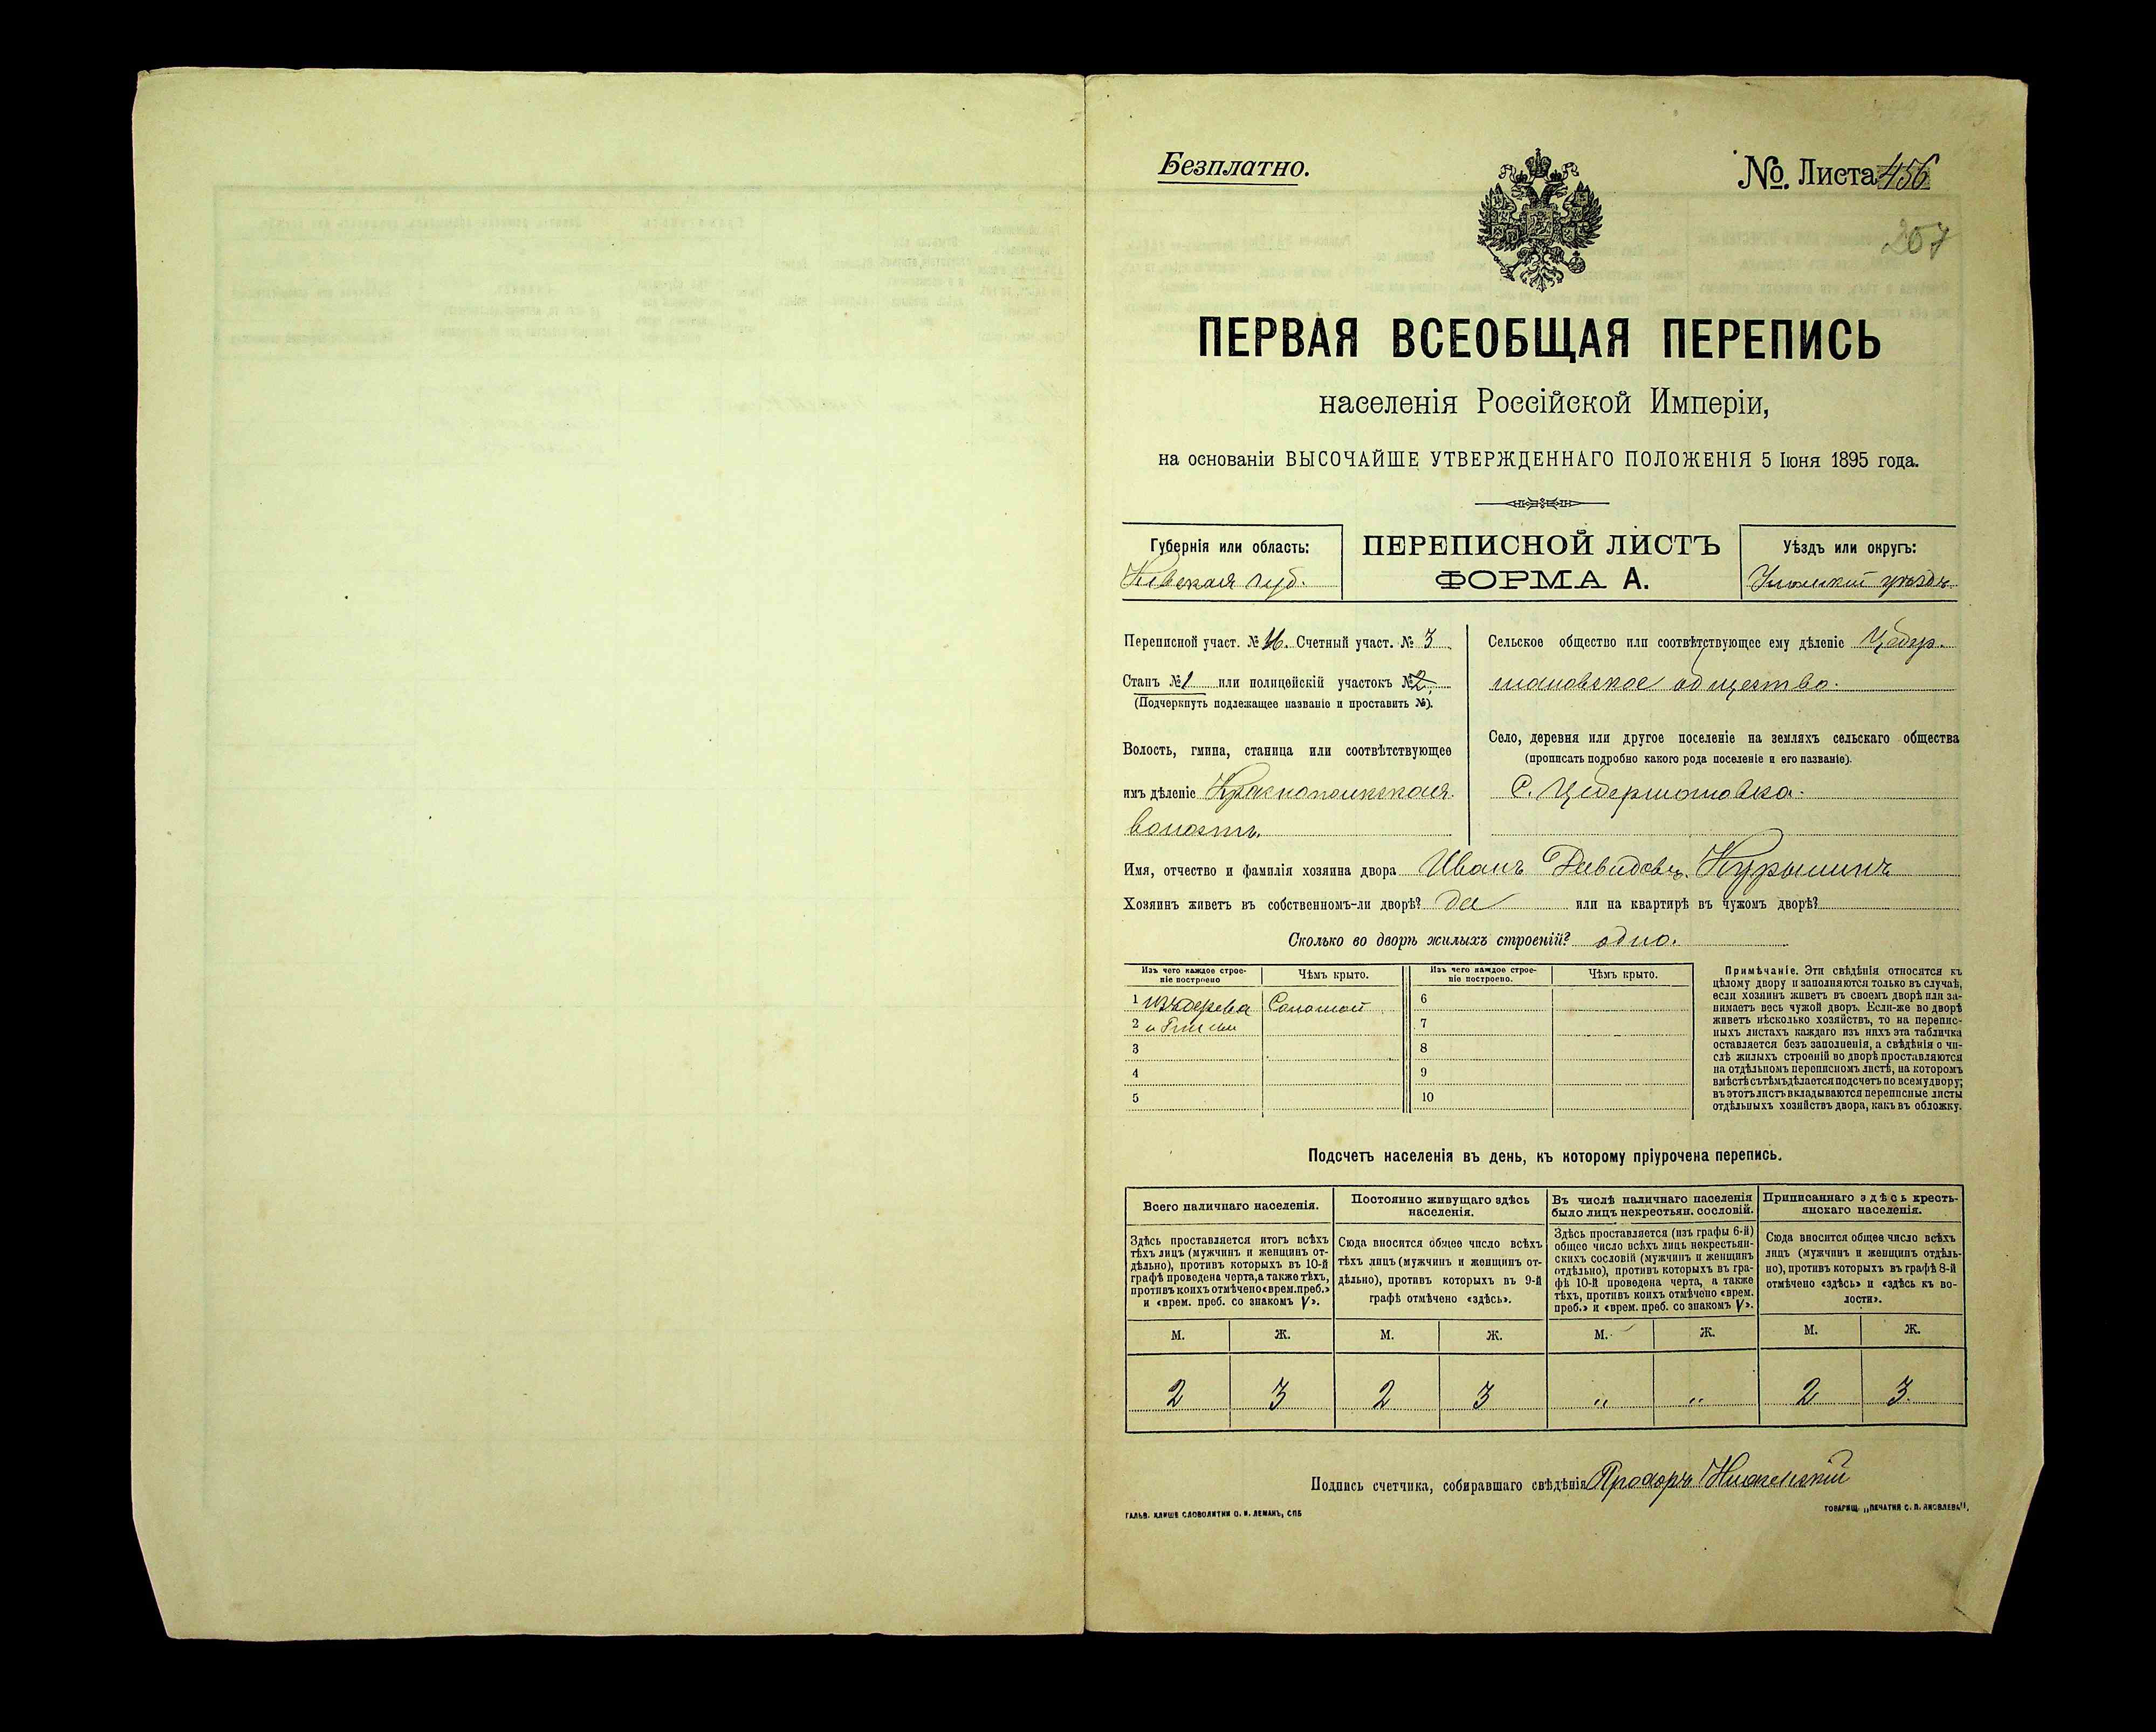 Безплатно.
№. Листа 156
207
ПЕРВАЯ ВСЕОБЩАЯ ПЕРЕПИСЬ
населенія Россійской Имперіи,
на основаніи ВЫСОЧАЙШЕ УТВЕРЖДЕННАГО ПОЛОЖЕНІЯ 5 Іюня 1895 года.
Губернія или область:
Кіевская губ.
ПЕРЕПИСНОЙ ЛИСТЪ
ФОРМА А.
Уѣздъ или округъ:
Уманскій уѣздъ
Переписной участ. № 16. Счетный участ. № 3
Станъ № 1 или полицейскій участокъ № 2
(Подчеркнуть подлежащее названіе и проставить №).
Волость, гмина, станица или соотвѣтствующее
имъ дѣленіе Краснопольская
волость.
Сельское общество или соотвѣтствующее ему дѣленіе Цебер
мановское общество.
Село, деревня или другое поселеніе на земляхъ сельскаго общества
(прописать подробно какого рода поселеніе и его названіе).
С. Цебермановка.
Имя, отчество и фамилія хозяина двора Иванъ Давидовъ
Хозяинъ живетъ въ собственномъ-ли дворѣ? да или на квартирѣ въ чужомъ дворѣ?
Сколько во дворѣ жилыхъ строеній? одно.
Изъ чего каждое строе-
ніе построено
Чѣмъ крыто.
Изъ чего каждое строе-
ніе построено.
Чѣмъ крыто.
1 изъ дерева Соломой 6
2 и глины 7
3 8
4 9
5 10
Примѣчаніе. Эти свѣдѣнія относятся къ
цѣлому двору и заполняются только въ случаѣ,
если хозяинъ живетъ въ своемъ дворѣ или за-
нимаетъ весь чужой дворъ. Если-же во дворѣ
живетъ нѣсколько хозяйствъ, то на перепис-
ныхъ листахъ каждаго изъ нихъ эта табличка
оставляется безъ заполненія, а свѣдѣнія о чи-
слѣ жилыхъ строеній во дворѣ проставляются
на отдѣльномъ переписномъ листѣ, на которомъ
вмѣстѣ съ тѣмъ дѣлается подсчетъ по всему двору;
въ этотъ листъ вкладываются переписные листы
отдѣльныхъ хозяйствъ двора, какъ въ обложку.
Подсчетъ населенія въ день, къ которому пріурочена перепись.
Всего наличнаго населенія.
Здѣсь проставляется итогъ всѣхъ
тѣхъ лицъ (мужчинъ и женщинъ от-
дѣльно), противъ которыхъ въ 10-й
графѣ проведена черта, а также тѣхъ,
противъ коихъ отмѣчено «врем. преб.»
и «врем. преб. со знакомъ V».
Постоянно живущаго здѣсь
населенія.
Сюда вносится общее число всѣхъ
тѣхъ лицъ (мужчинъ и женщинъ от-
дѣльно), противъ которыхъ въ 9-й
графѣ отмѣчено «здѣсь».
Въ числѣ наличнаго населенія
было лицъ некрестьян. сословій.
Здѣсь проставляется (изъ графы 6-й)
общее число всѣхъ лицъ некрестьян-
скихъ сословій (мужчинъ и женщинъ
отдѣльно), противъ которыхъ въ гра-
фѣ 10-й проведена черта, а также
тѣхъ, противъ коихъ отмѣчено «врем.
преб.» и «врем. преб. со знакомъ V».
Приписаннаго здѣсь кресть-
янскаго населенія.
Сюда вносится общее число всѣхъ
лицъ (мужчинъ и женщинъ отдѣль-
но), противъ которыхъ въ графѣ 8-й
отмѣчено «здѣсь» и «здѣсь къ во-
лости».
М. Ж. М. Ж. М. Ж. М. Ж.
2 3 2 3 " " 2 3.
Подпись счетчика, собиравшаго свѣдѣнія Прохоръ
ГАЛЬВ. КЛИШЕ СЛОВОЛИТНИ О. И. ЛЕМАНЪ, СПБ
ТОВАРИЩ. „ПЕЧАТНЯ С. П. ЯКОВЛЕВА".